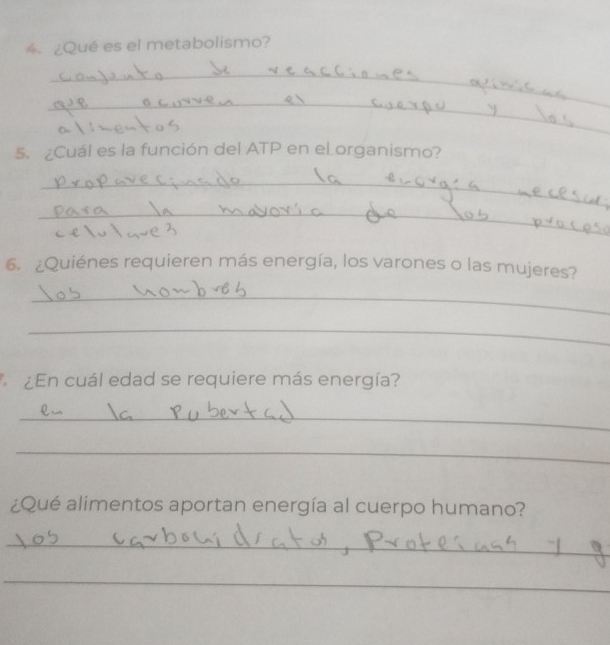 4. ¿Qué es el metabolismo?
conjunto de reacciones quimicas
que ocurren el cuerpo y los
alimentos
5. ¿Cuál es la función del ATP en el organismo?
la energia necesari
para la mayoria de los proceso
celulares
6. ¿Quiénes requieren más energía, los varones o las mujeres?
los hombres
¿En cuál edad se requiere más energía?
en la Pubertad
¿Qué alimentos aportan energía al cuerpo humano?
los carbohidratos, Proteinas y g